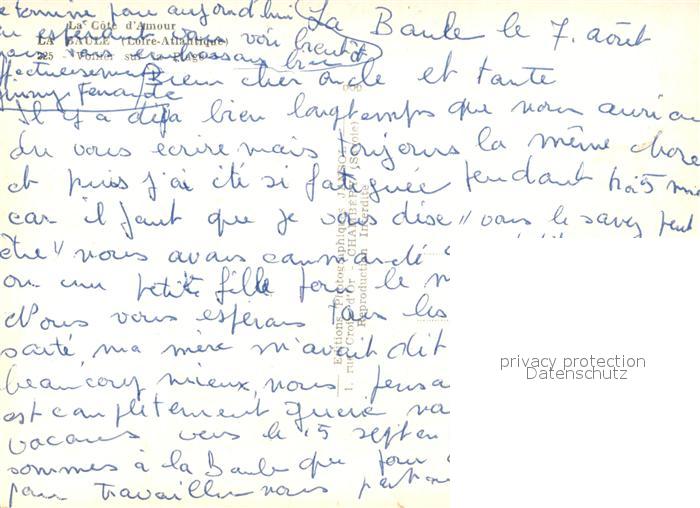 La Baule le 7. août
Bien cher oncle et tante
Il y a déjà bien longtemps que nous
du vous écrire mais toujours la même chose
et puis j'ai été si fatiguée pendant
car il faut que je vous dise "vous le savez peut
être" nous avons commandé
ou une petite fille pour le
Nous vous espérons tous les
santé, ma mère m'avait dit
beaucoup mieux, nous
est complètement
vacances vers le 15
sommes à la Baule que pour
pour travailler nous
termine pour aujourd'hui
en espérant vous voir bientôt
vous embrassons bien
affectueusement
La Côte d'Amour
LA BAULE (Loire-Atlantique)
225 - Voilier sur la Plage
Editions Photographiques
1, rue Croix-d'Or - CHAMBÉRY (Savoie)
Reproduction Interdite
privacy protection
Datenschutz